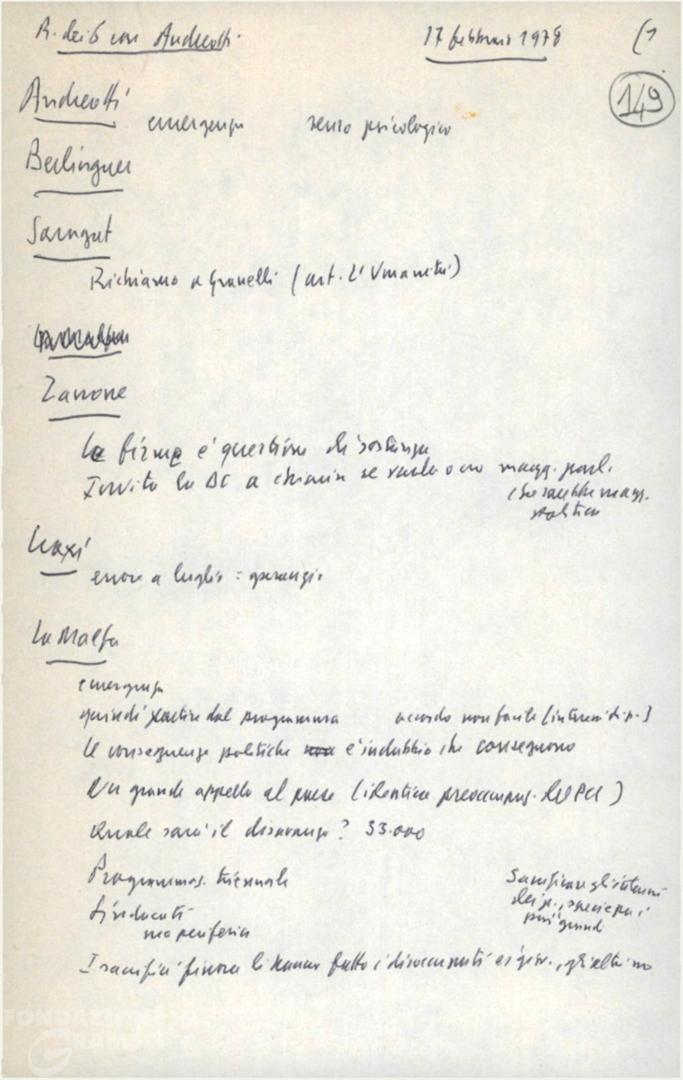 R. dei 6 con Andreotti 17 febbraio 1978 (1
149
Andreotti
emergenza senso psicologico
Berlinguer
Saragat
Richiamo a Granelli (art. L'Umanità)
Zanone
La firma è questione di sostanza
Invito la DC a chiarire se vuole o no magg. parl.
che sarebbe magg.
politica
Craxi
errore a luglio = garanzie
La Malfa
emergenza
quindi partire dal programma accordo non facile (interessi di p.)
le conseguenze politiche è indubbio che conseguono
Un grande appello al paese (identica preoccupaz. del PCI)
Quale sarà il disavanzo? 33.000
Programmaz. triennale
Sacrificare gli interessi
dei p., specie per i
più grandi
Sindacati
ma periferia
I sacrifici finora li hanno fatto i disoccupati e i giov., gli altri no
FONDAZIONE
GRAMSCI